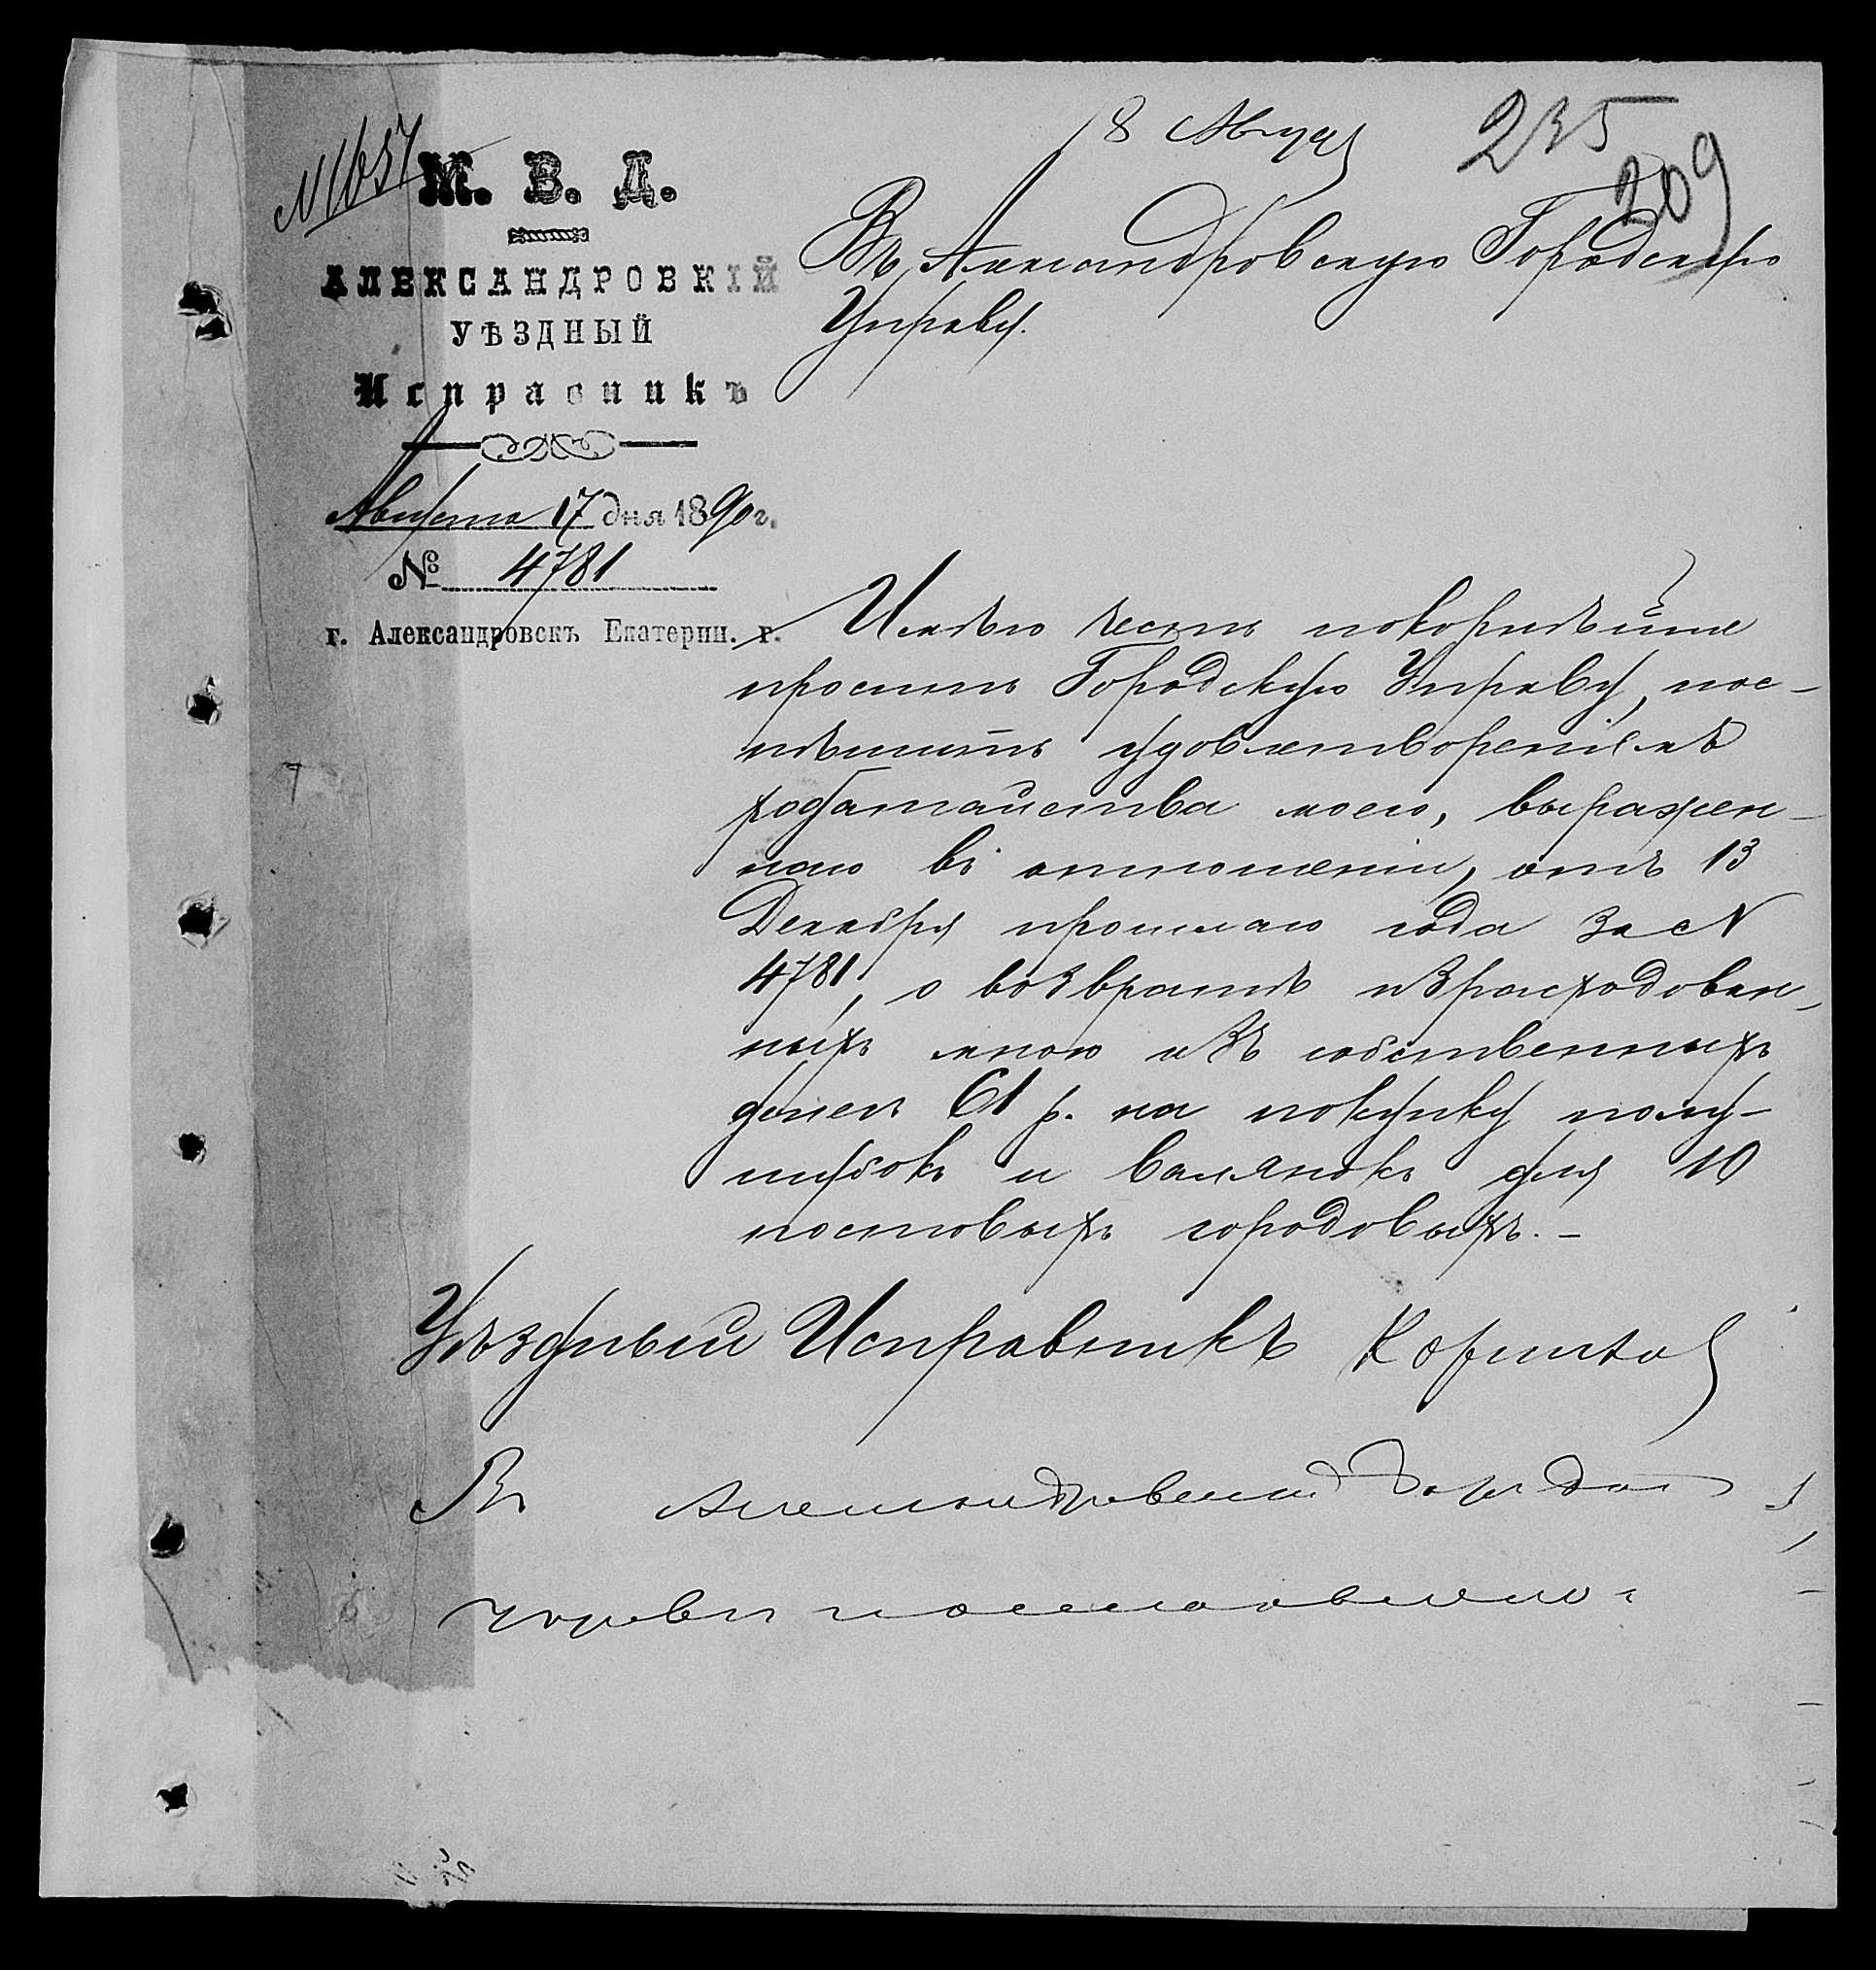 18 Августа
235
209
№ 1657
М. В. Д.
АЛЕКСАНДРОВКІЙ
УѢЗДНЫЙ
Исправникъ
Августа 17 дня 1890 г.
№ 4781
г. Александровскъ Екатерин. г.
Въ Александровскую Городскую
Управу.
Имѣю честь покорнѣйше
просить Городскую Управу, пос-
пѣшить удовлетвореніемъ
ходатайства моего, выражен-
наго въ отношеніи, отъ 13
Декабря прошлаго года за №
4781, о возвратѣ израсходован-
ныхъ мною изъ собственныхъ
денегъ 61 р. на покупку полу-
шубокъ и валянокъ для 10
постовыхъ городовыхъ. –
Уѣздный Исправникъ
Въ Александровской Город